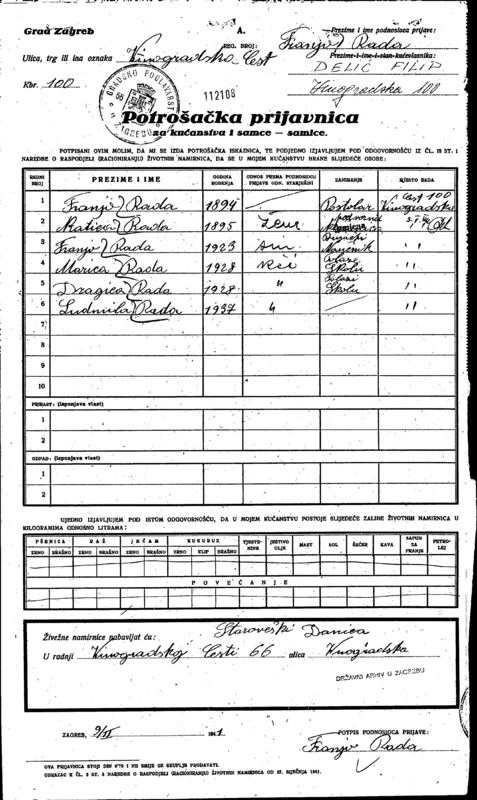 Grad Zagreb
A.
Prezime i ime podnosioca prijave:
Ulica, trg ili ina oznaka Vinogradska Cest
REG. BROJ:
Franjo Rada
Prezime i ime stan kućevlasnika:
DELIĆ FILIP
Kbr. 100
112108
Vinogradska 100
GRADSKO POGLAVARSTVO
U ZAGREBU
Potrošačka prijavnica
za kućanstva i samce — samice.
POTPISANI OVIM MOLIM, DA MI SE IZDA POTROŠAČKA ISKAZNICA, TE PODJEDNO IZJAVLJUJEM POD ODGOVORNOŠĆU IZ ČL. 18 ST. 1
NAREDBE O RASPODJELI (RACIONIRANJU) ŽIVOTNIH NAMIRNICA, DA SE U MOJEM KUĆANSTVU HRANE SLIJEDEĆE OSOBE:
REDNI BROJ
PREZIME I IME
GODINA ROĐENJA
ODNOS PREMA PODNOSIOCU PRIJAVE ODN. STARJEŠINI
ZANIMANJE
MJESTO RADA
1 Franjo Rada 1894 Postolar Cest 100 Vinogradska
2 Rada 1895 Žena
3 Franjo Rada 1923 Sin ,,
4 Marica Rada 1928 Kći Školu ,,
5 Dragica Rada 1928 " Školu ,,
6 Ludmila Rada 1937 " ,,
7
8
9
10
PRIRAST: (ispunjava vlast)
1
2
OTPAD: (ispunjava vlast)
1
2
UJEDNO IZJAVLJUJEM POD ISTOM ODGOVORNOŠĆU, DA U MOJEM KUĆANSTVU POSTOJE SLIJEDEĆE ZALIHE ŽIVOTNIH NAMIRNICA U
KILOGRAMIMA ODNOSNO LITRAMA:
PŠENICA RAŽ JEČAM KUKURUZ TJESTENINE JESTIVO ULJE MAST SOL ŠEĆER KAVA SAPUN ZA PRANJE PETROLEJ
ZRNO BRAŠNO ZRNO BRAŠNO ZRNO BRAŠNO ZRNO KLIP BRAŠNO
POVEĆANJE
Živežne namirnice nabavljat ću: Staroveški Danica
U radnji Vinogradskoj Cesti 66 ulica Vinogradska
DRŽAVNI ARHIV U ZAGREBU
ZAGREB, 9/VI 1941
POTPIS PODNOSIOCA PRIJAVE:
Franjo Rada
OVA PRIJAVNICA STOJI DIN 0'75 I NE SMIJE SE SKUPLJE PRODAVATI.
OBRAZAC K ČL. 8 ST. 2 NAREDBE O RASPODJELI (RACIONIRANJU) ŽIVOTNIH NAMIRNICA OD 27. SIJEČNJA 1941.